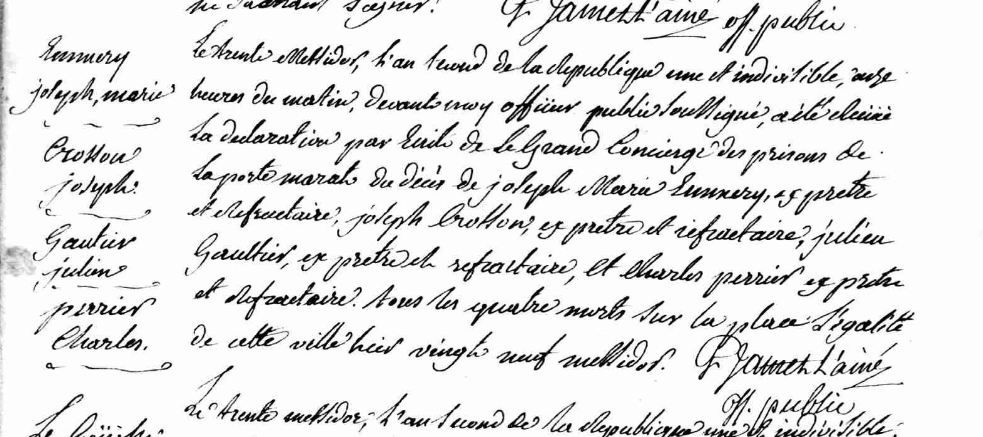 G. Jamet L'ainé
off. public
Emmery
joseph, marie
Crosson
joseph.
Gautier
julien
perrier
Charles.
Le trente Messidor, l'an second de la Republique une et indivisible, onze
heures du matin, devant moy officier public soussigné, a été
La declaration par Emile de Le Grand Concierge des prisons de
La porte marat du décès de joseph Marie Emmery, ex pretre
et Refractaire, joseph Crosson, ex pretre et refractaire, julien
Gaultier, ex pretre et refractaire, Et Charles perrier ex pretre
et Refractaire. tous les quatre morts sur la place l'égalité
de cette ville hier vingt neuf messidor. G. Jamet L'ainé
off. public
Le trente messidor, l'an second de la Republique une et indivisible,